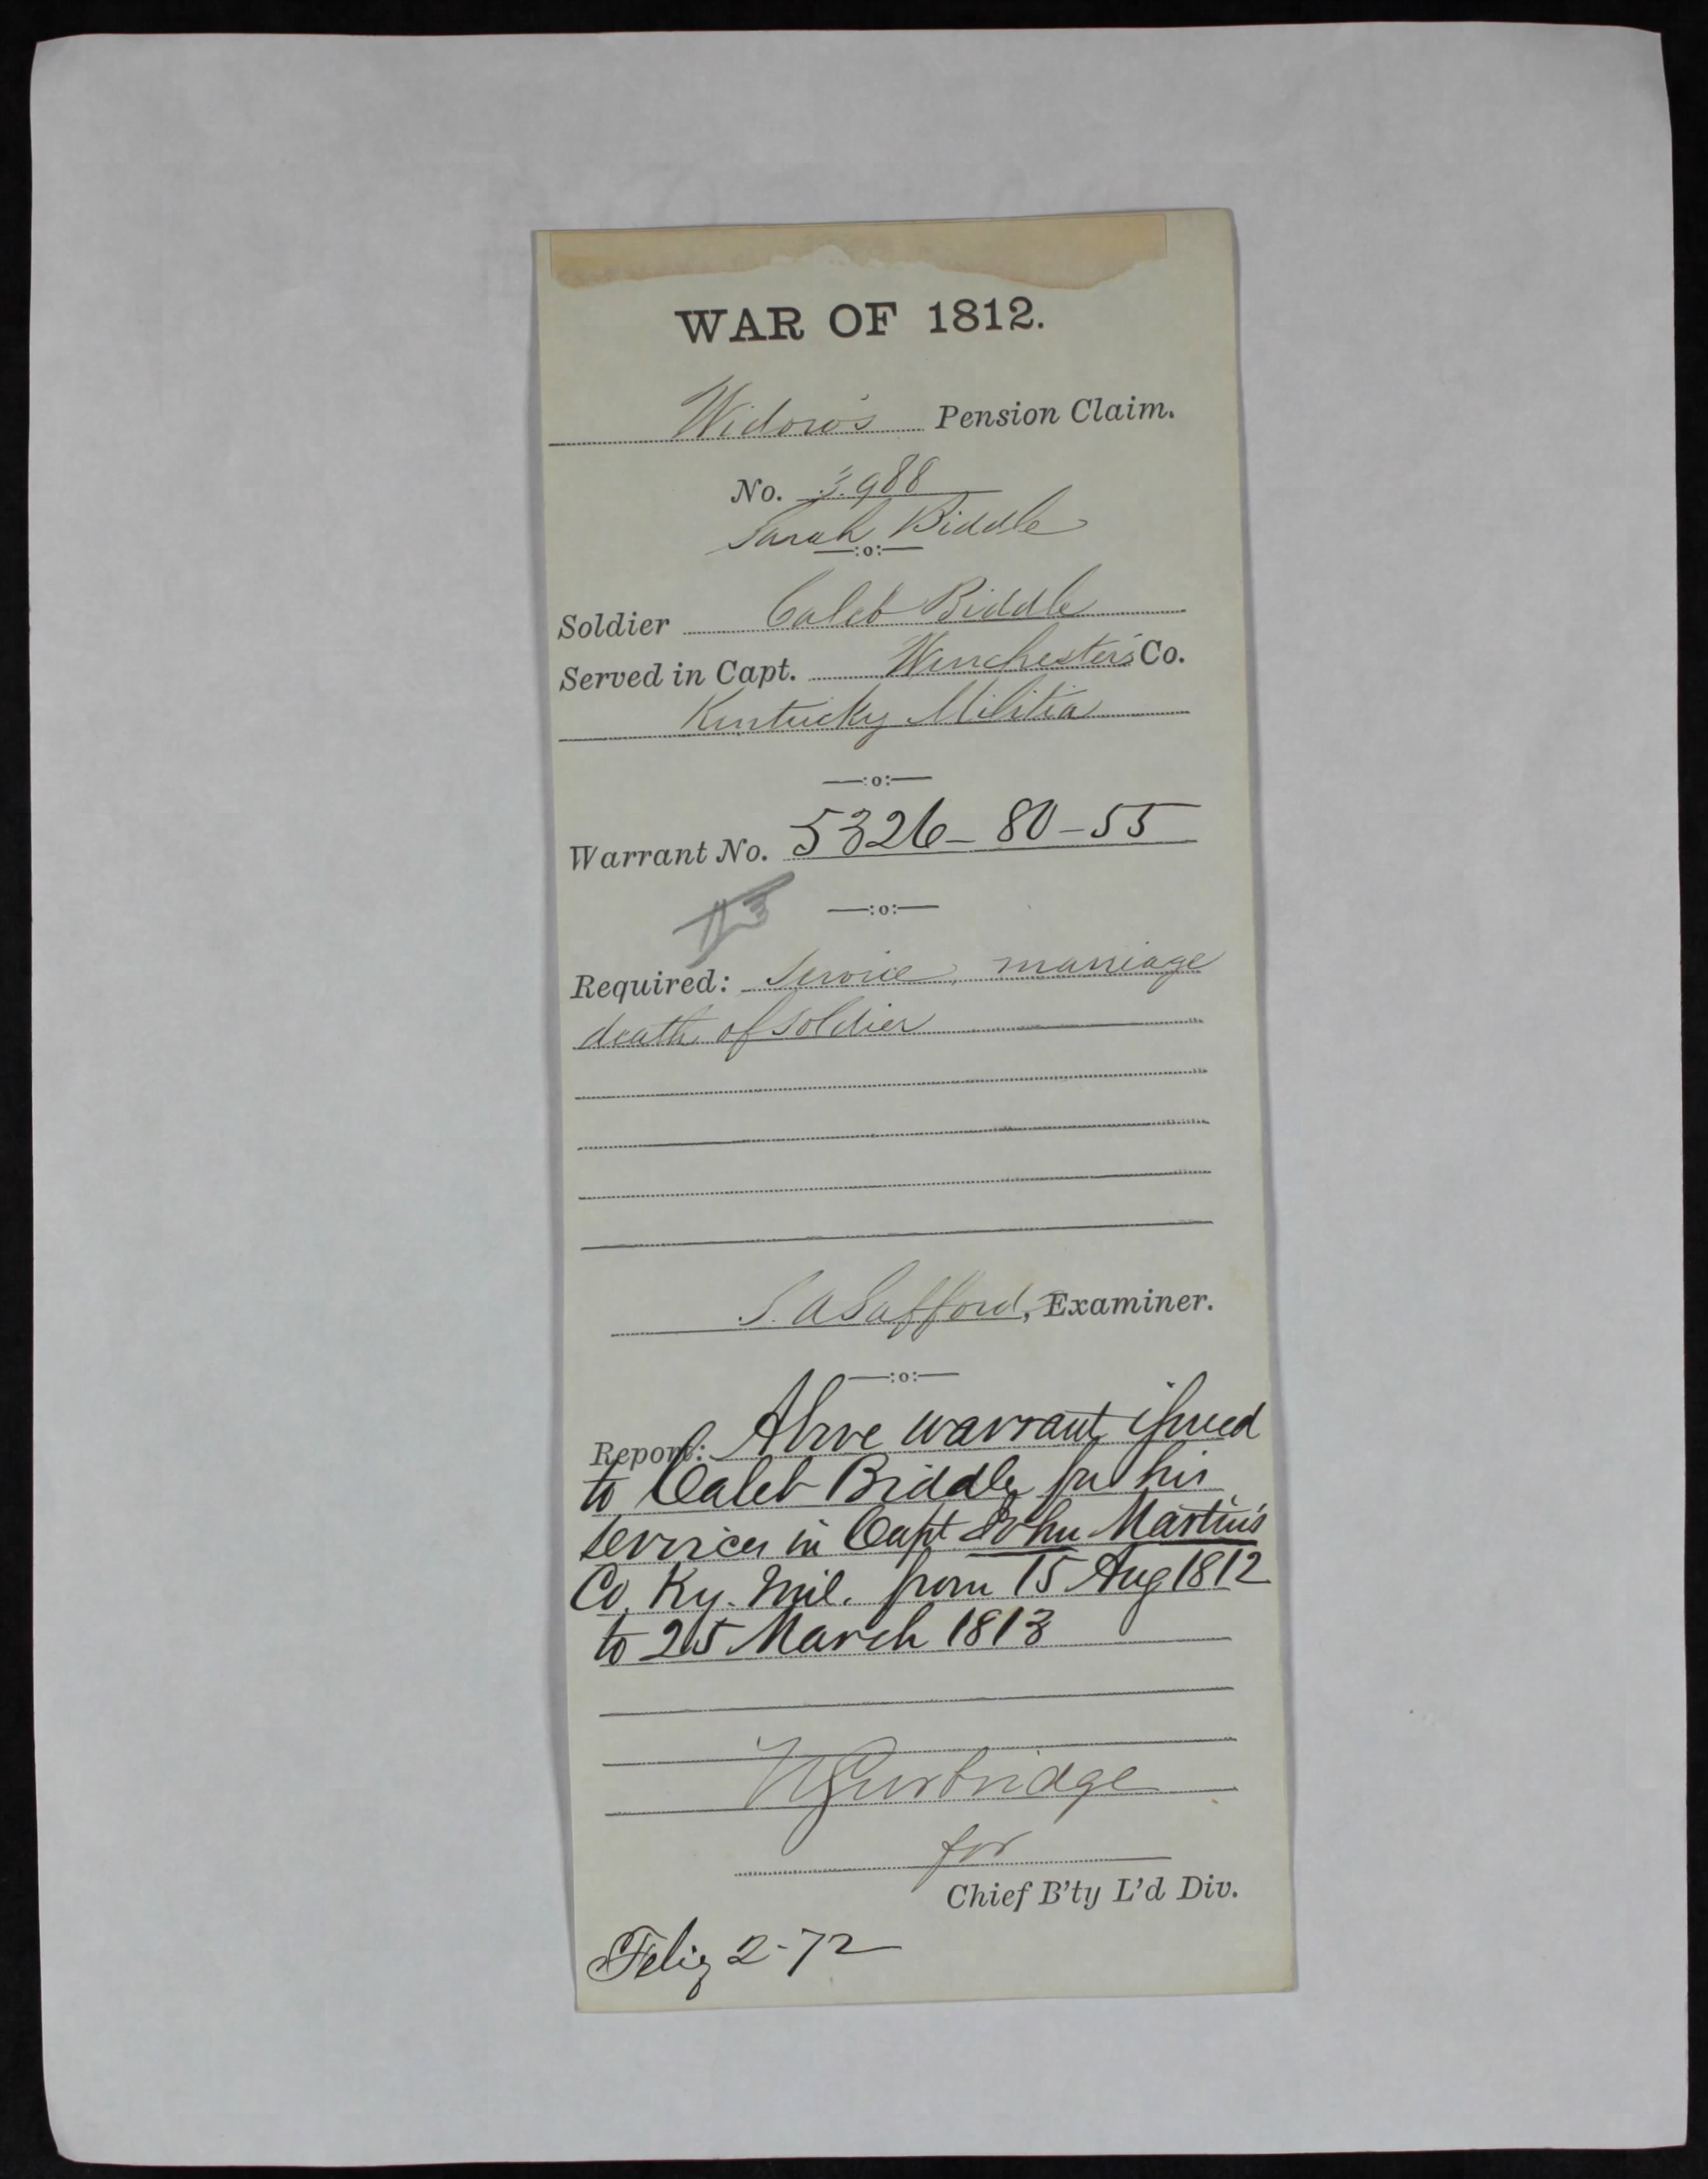 WAR OF 1812.
Widow's Pension Claim.
No. 3988
Sarah Biddle
—:o:—
Soldier Caleb Biddle
Served in Capt. Winchester's Co.
Kentucky Militia
—:o:—
Warrant No. 5326 - 80 - 55
—:o:—
Required: Service, marriage
death of soldier
S. A Safford, Examiner.
—:o:—
Report: Above warrant issued
to Caleb Biddle for his
services in Capt John Martin's
Co. Ky. Mil. from 15 Aug 1812
to 25 March 1813
for
Chief B'ty L'd Div.
2-72